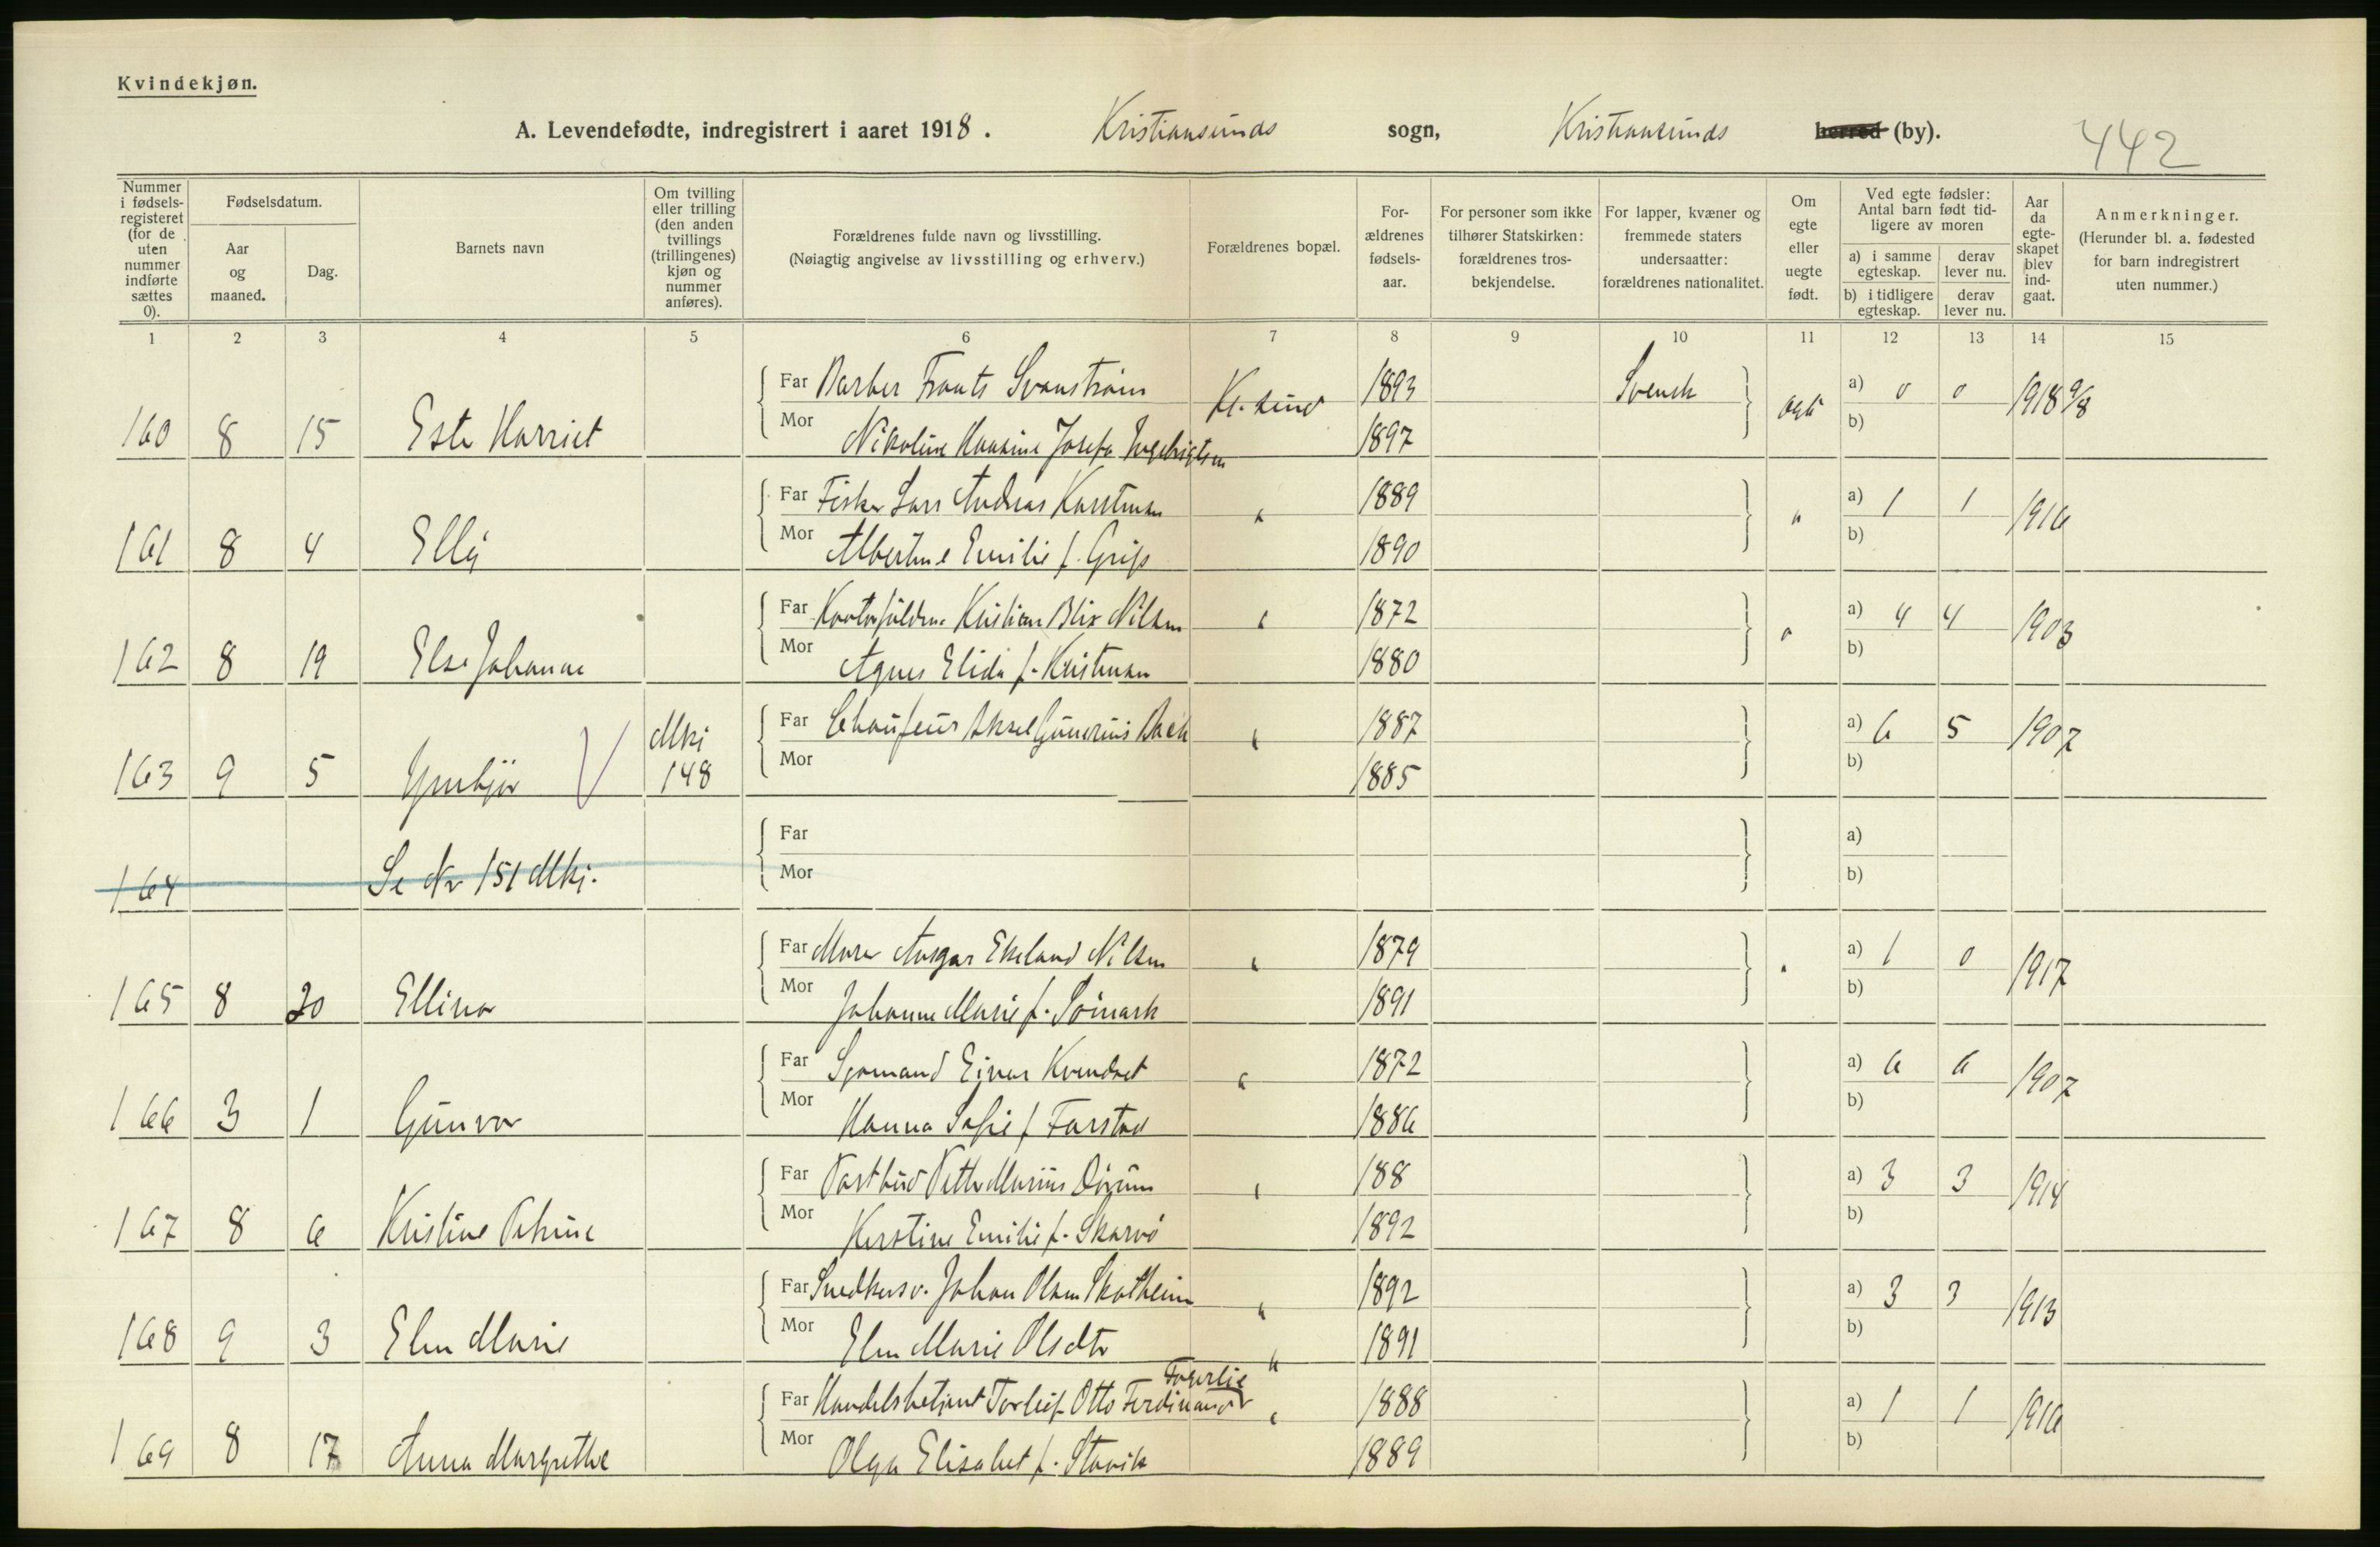 Kvindekjøn.
A. Levendefødte, indregistrert i aaret 1918. Kristiansunds sogn, Kristiansunds herred (by). 442
Nummer i fødsels-registeret (for de uten nummer indførte sættes 0).
Fødselsdatum.
Aar og maaned.
Dag.
Barnets navn
Om tvilling eller trilling (den anden tvillings (trillingenes) kjøn og nummer anføres).
Forældrenes fulde navn og livsstilling.
(Nøiagtig angivelse av livsstilling og erhverv.)
Forældrenes bopæl.
For-ældrenes fødsels-aar.
For personer som ikke tilhører Statskirken: forældrenes tros-bekjendelse.
For lapper, kvæner og fremmede staters undersaatter: forældrenes nationalitet.
Om egte eller uegte født.
Ved egte fødsler: Antal barn født tid-ligere av moren
a) i samme egteskap.
derav lever nu.
b) i tidligere egteskap.
derav lever nu.
Aar da egte-skapet blev ind-gaat.
Anmerkninger.
(Herunder bl. a. fødested for barn indregistrert uten nummer.)
1 2 3 4 5 6 7 8 9 10 11 12 13 14 15
Far Barber Frants Svanstrøm Kr.sund 1893 Svensk a) 0 0 1918 9/8
160 8 15 Harriet egte
Mor Nikoline Hansine Josefa Ingebrigtsen 1897 b)
Far Fisker Lars Andreas Karstensen " 1889 " a) 1 1 1916
161 8 4 Elly
Mor Albertine Emilie f. Grip 1890 b)
Far Kristian Blix Nilsen " 1872 " a) 4 4 1903
162 8 19 Else Johanne
Mor Agnes Elida f. Kristensen 1880 b)
Far Chauffeur Aksel Gunerius " 1887 a) 6 5 1907
163 9 5 Mkj 148
Mor 1885 b)
Far a)
164 Se Nr 151 Mkj.
Mor b)
Far Murer Ansgar Ekeland Nilsen " 1879 " a) 1 0 1917
165 8 20 Ellinor
Mor Johanne Marie f. 1891 b)
Far Sjømand Einar " 1872 a) 6 6 1907
166 3 1 Gunvor
Mor Hanna Sofie f. Farstad 1886 b)
Far Postbud Petter Marius " 188 a) 3 3 1914
167 8 6 Kristine
Mor Kirstine Emilie f. Skarvø 1892 b)
Far Snedkersv. Johan Olsen Skotheim " 1892 a) 3 3 1913
168 9 3 Elen Marie
Mor Elen Marie Olsdtr " 1891 b)
Fagerlie
Far Handelsbetjent Torleif Otto Ferdinand " 1888 a) 1 1 1916
169 8 17 Anna Margrethe
Mor Olga Elisabet f. Stavik 1889 b)